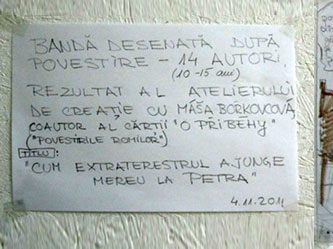 BANDĂ DESENATĂ DUPĂ
POVESTIRE - 14 AUTORI
(10-15 ani)
REZULTAT AL ATELIERULUI
DE CREAȚIE CU MÁŠA BOŘKOVCOVÁ
COAUTOR AL CĂRȚII "O PŘIBĚHY"
("POVESTIRILE ROMILOR")
TITLU:
"CUM EXTRATERESTRUL AJUNGE
MEREU LA PETRA"
4.11.2011